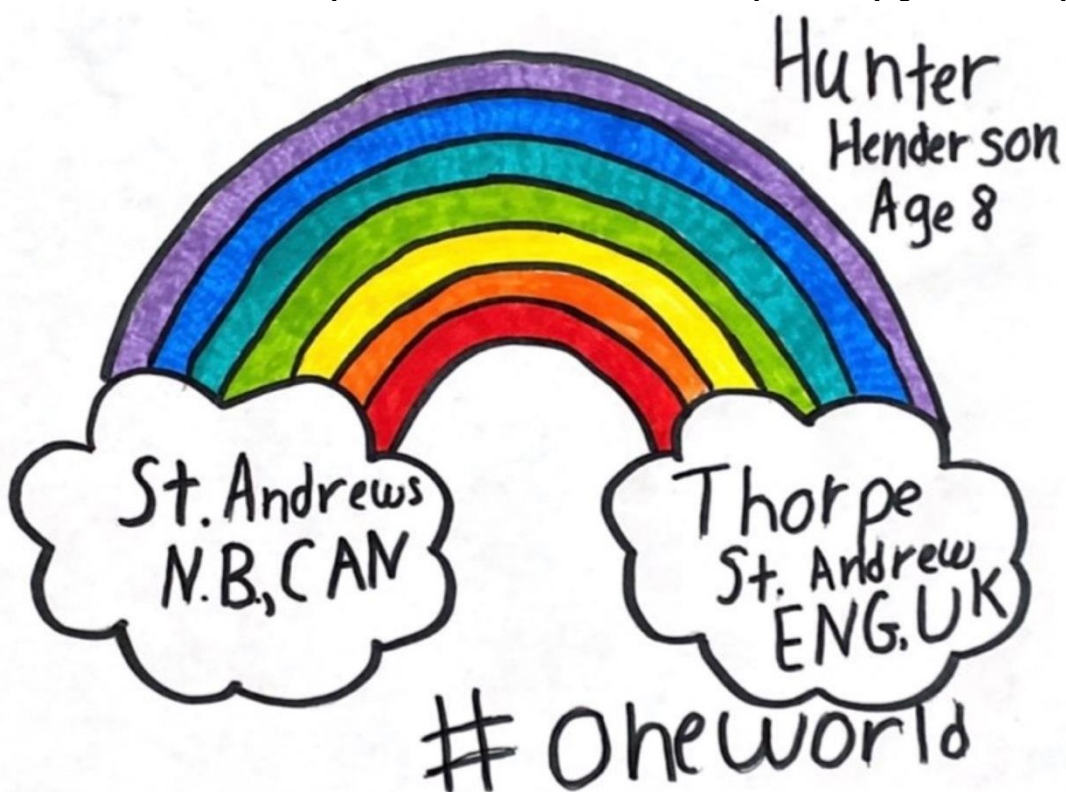 Hunter
Henderson
Age 8
St. Andrews
N.B., CAN
Thorpe
St. Andrew
ENG, UK
#oneworld